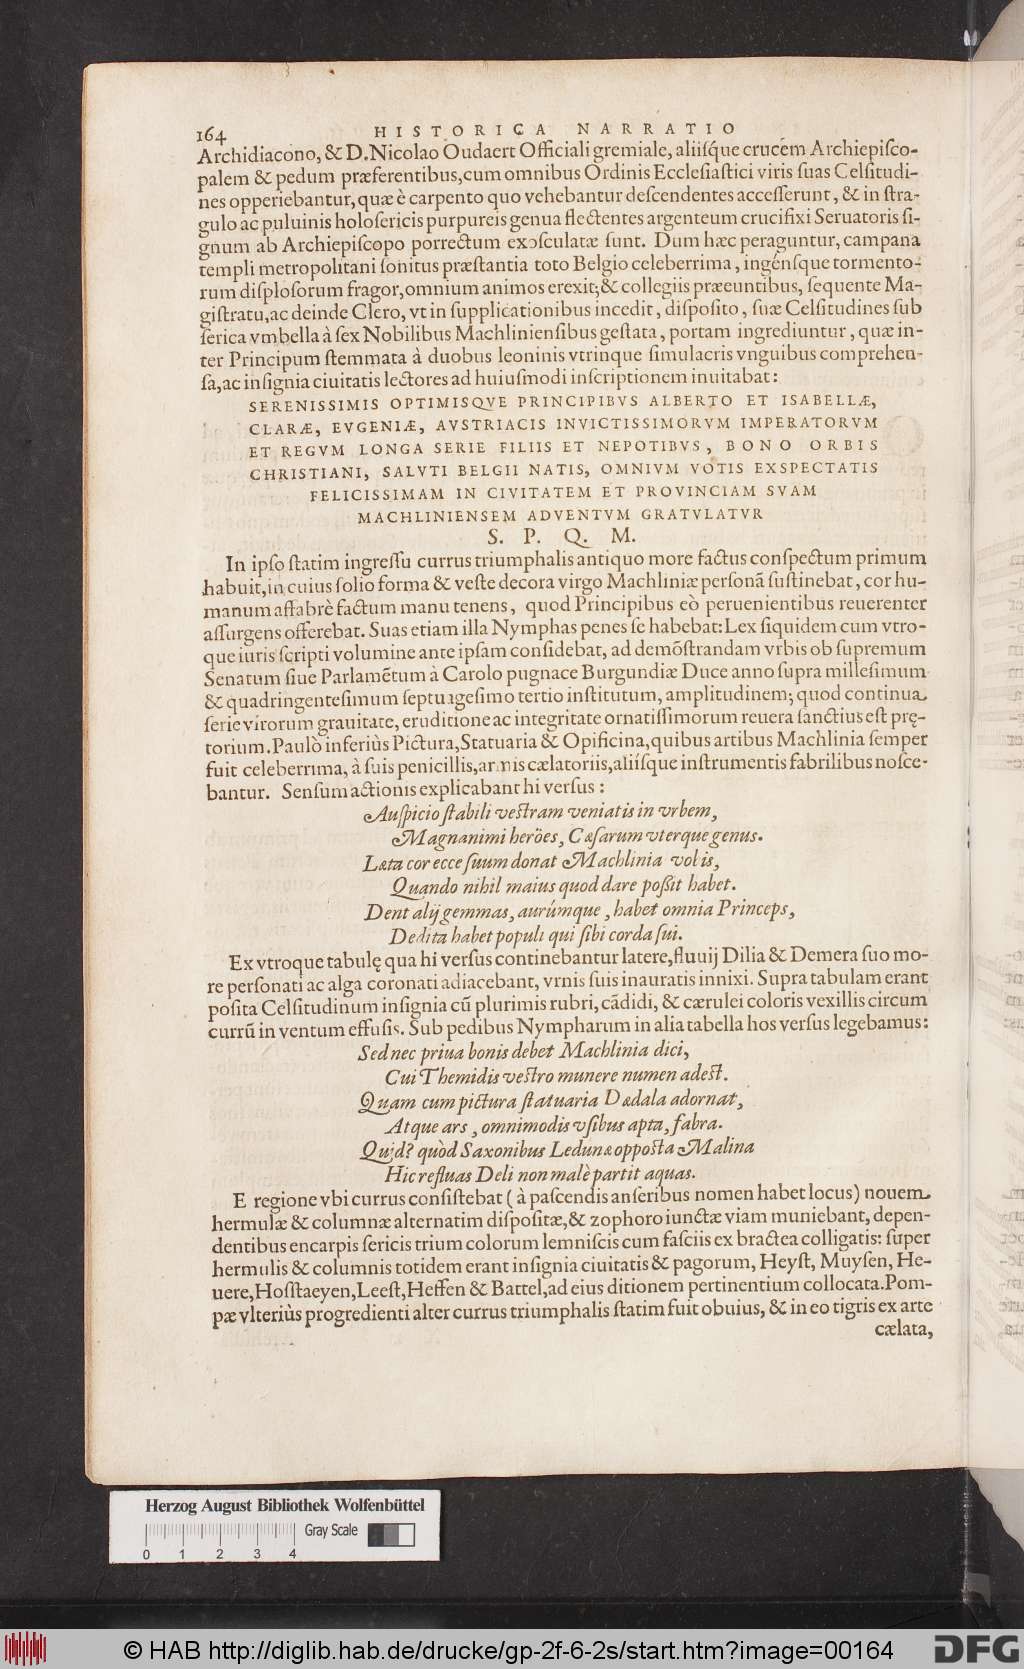 164 HISTORICA NARRATIO
Archidiacono, & D. Nicolao Oudaert Officiali gremiale, aliiſq́ue crucem Archiepiſco-
palem & pedum præferentibus, cum omnibus Ordinis Eccleſiaſtici viris ſuas Celſitudi-
nes opperiebantur, quæ è carpento quo vehebantur deſcendentes acceſſerunt, & in ſtra-
gulo ac puluinis holoſericis purpureis genua flectentes argenteum crucifixi Seruatoris ſi-
gnum ab Archiepiſcopo porrectum exoſculatæ ſunt. Dum hæc peraguntur, campana
templi metropolitani ſonitus præſtantia toto Belgio celeberrima, ingénſque tormento-
rum diſploſorum fragor, omnium animos erexit; & collegiis præeuntibus, ſequente Ma-
giſtratu, ac deinde Clero, vt in ſupplicationibus incedit, diſpoſito, ſuæ Celſitudines ſub
ſerica vmbella à ſex Nobilibus Machlinienſibus geſtata, portam ingrediuntur, quæ in-
ter Principum ſtemmata à duobus leoninis vtrinque ſimulacris vnguibus comprehen-
ſa, ac inſignia ciuitatis lectores ad huiuſmodi inſcriptionem inuitabat:
SERENISSIMIS OPTIMISQVE PRINCIPIBVS ALBERTO ET ISABELLÆ,
CLARÆ, EVGENIÆ, AVSTRIACIS INVICTISSIMORVM IMPERATORVM
ET REGVM LONGA SERIE FILIIS ET NEPOTIBVS, BONO ORBIS
CHRISTIANI, SALVTI BELGII NATIS, OMNIVM VOTIS EXSPECTATIS
FELICISSIMAM IN CIVITATEM ET PROVINCIAM SVAM
MACHLINIENSEM ADVENTVM GRATVLATVR
S. P. Q. M.
In ipſo ſtatim ingreſſu currus triumphalis antiquo more factus conſpectum primum
habuit, in cuius ſolio forma & veſte decora virgo Machliniæ perſonã ſuſtinebat, cor hu-
manum affabrè factum manu tenens, quod Principibus eò peruenientibus reuerenter
aſſurgens offerebat. Suas etiam illa Nymphas penes ſe habebat: Lex ſiquidem cum vtro-
que iuris ſcripti volumine ante ipſam conſidebat, ad demõſtrandam vrbis ob ſupremum
Senatum ſiue Parlamẽtum à Carolo pugnace Burgundiæ Duce anno ſupra milleſimum
& quadringenteſimum ſeptuageſimo tertio inſtitutum, amplitudinem; quod continua
ſerie virorum grauitate, eruditione ac integritate ornatiſſimorum reuera ſanctius eſt pręꝛ-
torium. Paulò inferiùs Pictura, Statuaria & Opificina, quibus artibus Machlinia ſemper
fuit celeberrima, à ſuis penicillis, armis cælatoriis, aliiſque inſtrumentis fabrilibus noſce-
bantur. Senſum actionis explicabant hi verſus:
Auſpicio ſtabili veſtram veniatis in vrbem,
Magnanimi heröes, Cæſarum vterque genus.
Læta cor ecce ſuum donat Machlinia vobis,
Quando nihil maius quod dare poßit habet.
Dent alij gemmas, aurúmque, habet omnia Princeps,
Dedita habet populi qui ſibi corda ſui.
Ex vtroque tabulę qua hi verſus continebantur latere, fluuij Dilia & Demera ſuo mo-
re perſonati ac alga coronati adiacebant, vrnis ſuis inauratis innixi. Supra tabulam erant
poſita Celſitudinum inſignia cũ plurimis rubri, cãdidi, & cærulei coloris vexillis circum
currũ in ventum effuſis. Sub pedibus Nympharum in alia tabella hos verſus legebamus:
Sed nec priua bonis debet Machlinia dici,
Cui Themidis veſtro munere numen adeſt.
Quam cum pictura ſtatuaria Dædala adornat,
Atque ars, omnimodis vſibus apta, fabra.
Quid? quòd Saxonibus Ledunæ oppoſta Malina
Hic refluas Deli non malè partit aquas.
E regione vbi currus conſiſtebat (à paſcendis anſeribus nomen habet locus) nouem
hermulæ & columnæ alternatim diſpoſitæ, & zophoro iunctæ viam muniebant, depen-
dentibus encarpis ſericis trium colorum lemniſcis cum faſciis ex bractea colligatis: ſuper
hermulis & columnis totidem erant inſignia ciuitatis & pagorum, Heyſt, Muyſen, He-
uere, Hofſtaeyen, Leeſt, Heffen & Battel, ad eius ditionem pertinentium collocata. Pom-
pæ vlteriùs progredienti alter currus triumphalis ſtatim fuit obuius, & in eo tigris ex arte
cælata,
Herzog August Bibliothek Wolfenbüttel
Gray Scale
0 1 2 3 4
© HAB http://diglib.hab.de/drucke/gp-2f-6-2s/start.htm?image=00164
DFG